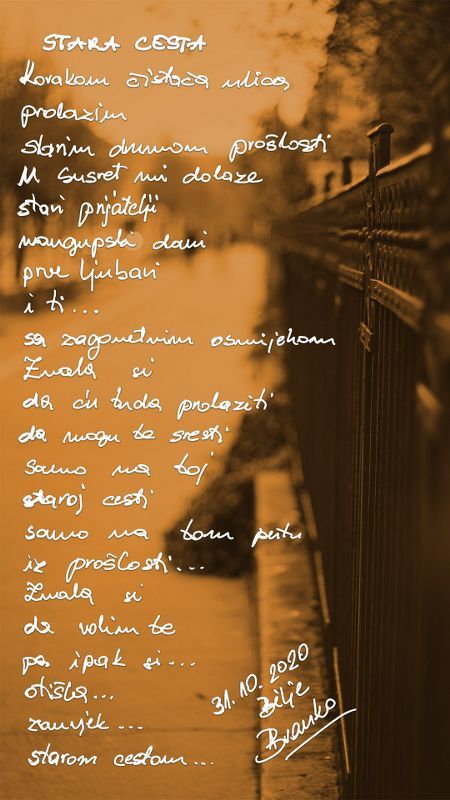 STARA CESTA
Korakom čistača ulica
prolazim
starim drumom prošlosti
U susret mi dolaze
stari prijatelji
mangupski dani
prve ljubavi
i ti...
sa zagonetnim osmijehom
Znala si
da ću tuda prolaziti
da mogu te sresti
samo na toj
staroj cesti
samo na tom putu
iz prošlosti...
Znala si
da volim te
pa ipak si...
otišla...
zauvjek...
starom cestom...
31.10.2020
Bilje
Branko